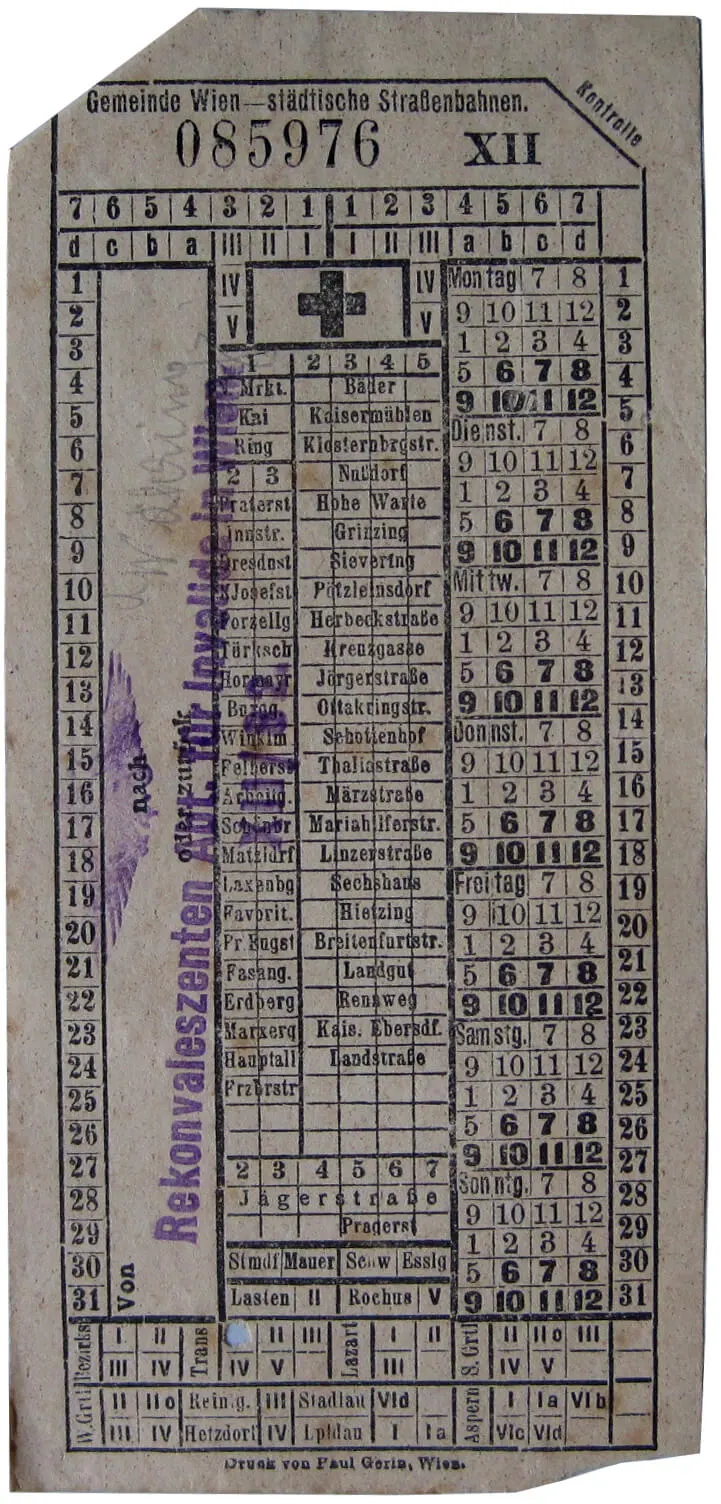 Gemeinde Wien—städtische Straßenbahnen.
Kontrolle
085976 XII
7 6 5 4 3 2 1 1 2 3 4 5 6 7
d c b a III II I I II III a b c d
IV IV
V V
1 2 3 4 5 6 7 8 9 10 11 12 13 14 15 16 17 18 19 20 21 22 23 24 25 26 27 28 29 30 31
Von
nach
oder zurück
Rekonvaleszenten Abt. für Invalide in Wien
1 2 3 4 5
Mrkt. Bäder
Kai Kaisermühlen
Ring Klosternbrgstr.
2 3 Nußdorf
Praterst Hohe Warte
Innstr. Grinzing
Dresdnst Sievering
Josefst Pötzleinsdorf
Porzellg Herbeckstraße
Türksch Kreuzgasse
Hormayr Jörgerstraße
Burgg. Ottakringstr.
Winklm Schottenhof
Felberst Thaliastraße
Arbeitg. Märzstraße
Schönbr Mariahilferstr.
Matzldrf Linzerstraße
Laxenbg Sechshaus
Favorit. Hietzing
Pr. Eugst Breitenfurtstr.
Fasang. Landgut
Erdberg Rennweg
Marxerg Kais. Ebersdf.
Hauptall Landstraße
Frzbrstr
2 3 4 5 6 7
Jägerstraße
Pragerst
Stmdf Mauer Schw Esslg
Lasten II Rochus V
Montag 7 8
9 10 11 12
1 2 3 4
5 6 7 8
9 10 11 12
Dienst. 7 8
9 10 11 12
1 2 3 4
5 6 7 8
9 10 11 12
Mittw. 7 8
9 10 11 12
1 2 3 4
5 6 7 8
9 10 11 12
Donnst. 7 8
9 10 11 12
1 2 3 4
5 6 7 8
9 10 11 12
Freitag 7 8
9 10 11 12
1 2 3 4
5 6 7 8
9 10 11 12
Samstg. 7 8
9 10 11 12
1 2 3 4
5 6 7 8
9 10 11 12
Sonntg. 7 8
9 10 11 12
1 2 3 4
5 6 7 8
9 10 11 12
1 2 3 4 5 6 7 8 9 10 11 12 13 14 15 16 17 18 19 20 21 22 23 24 25 26 27 28 29 30 31
Bezirks I II Trans II III Lazart I II S. Grtl II IIo III
III IV IV V III IV V
W. Grtl II IIo Rein.g. III Stadlau VId Aspern I Ia VIb
III IV Hetzdorf IV Lpldau I Ia VIc VId
Druck von Paul Gerin, Wien.